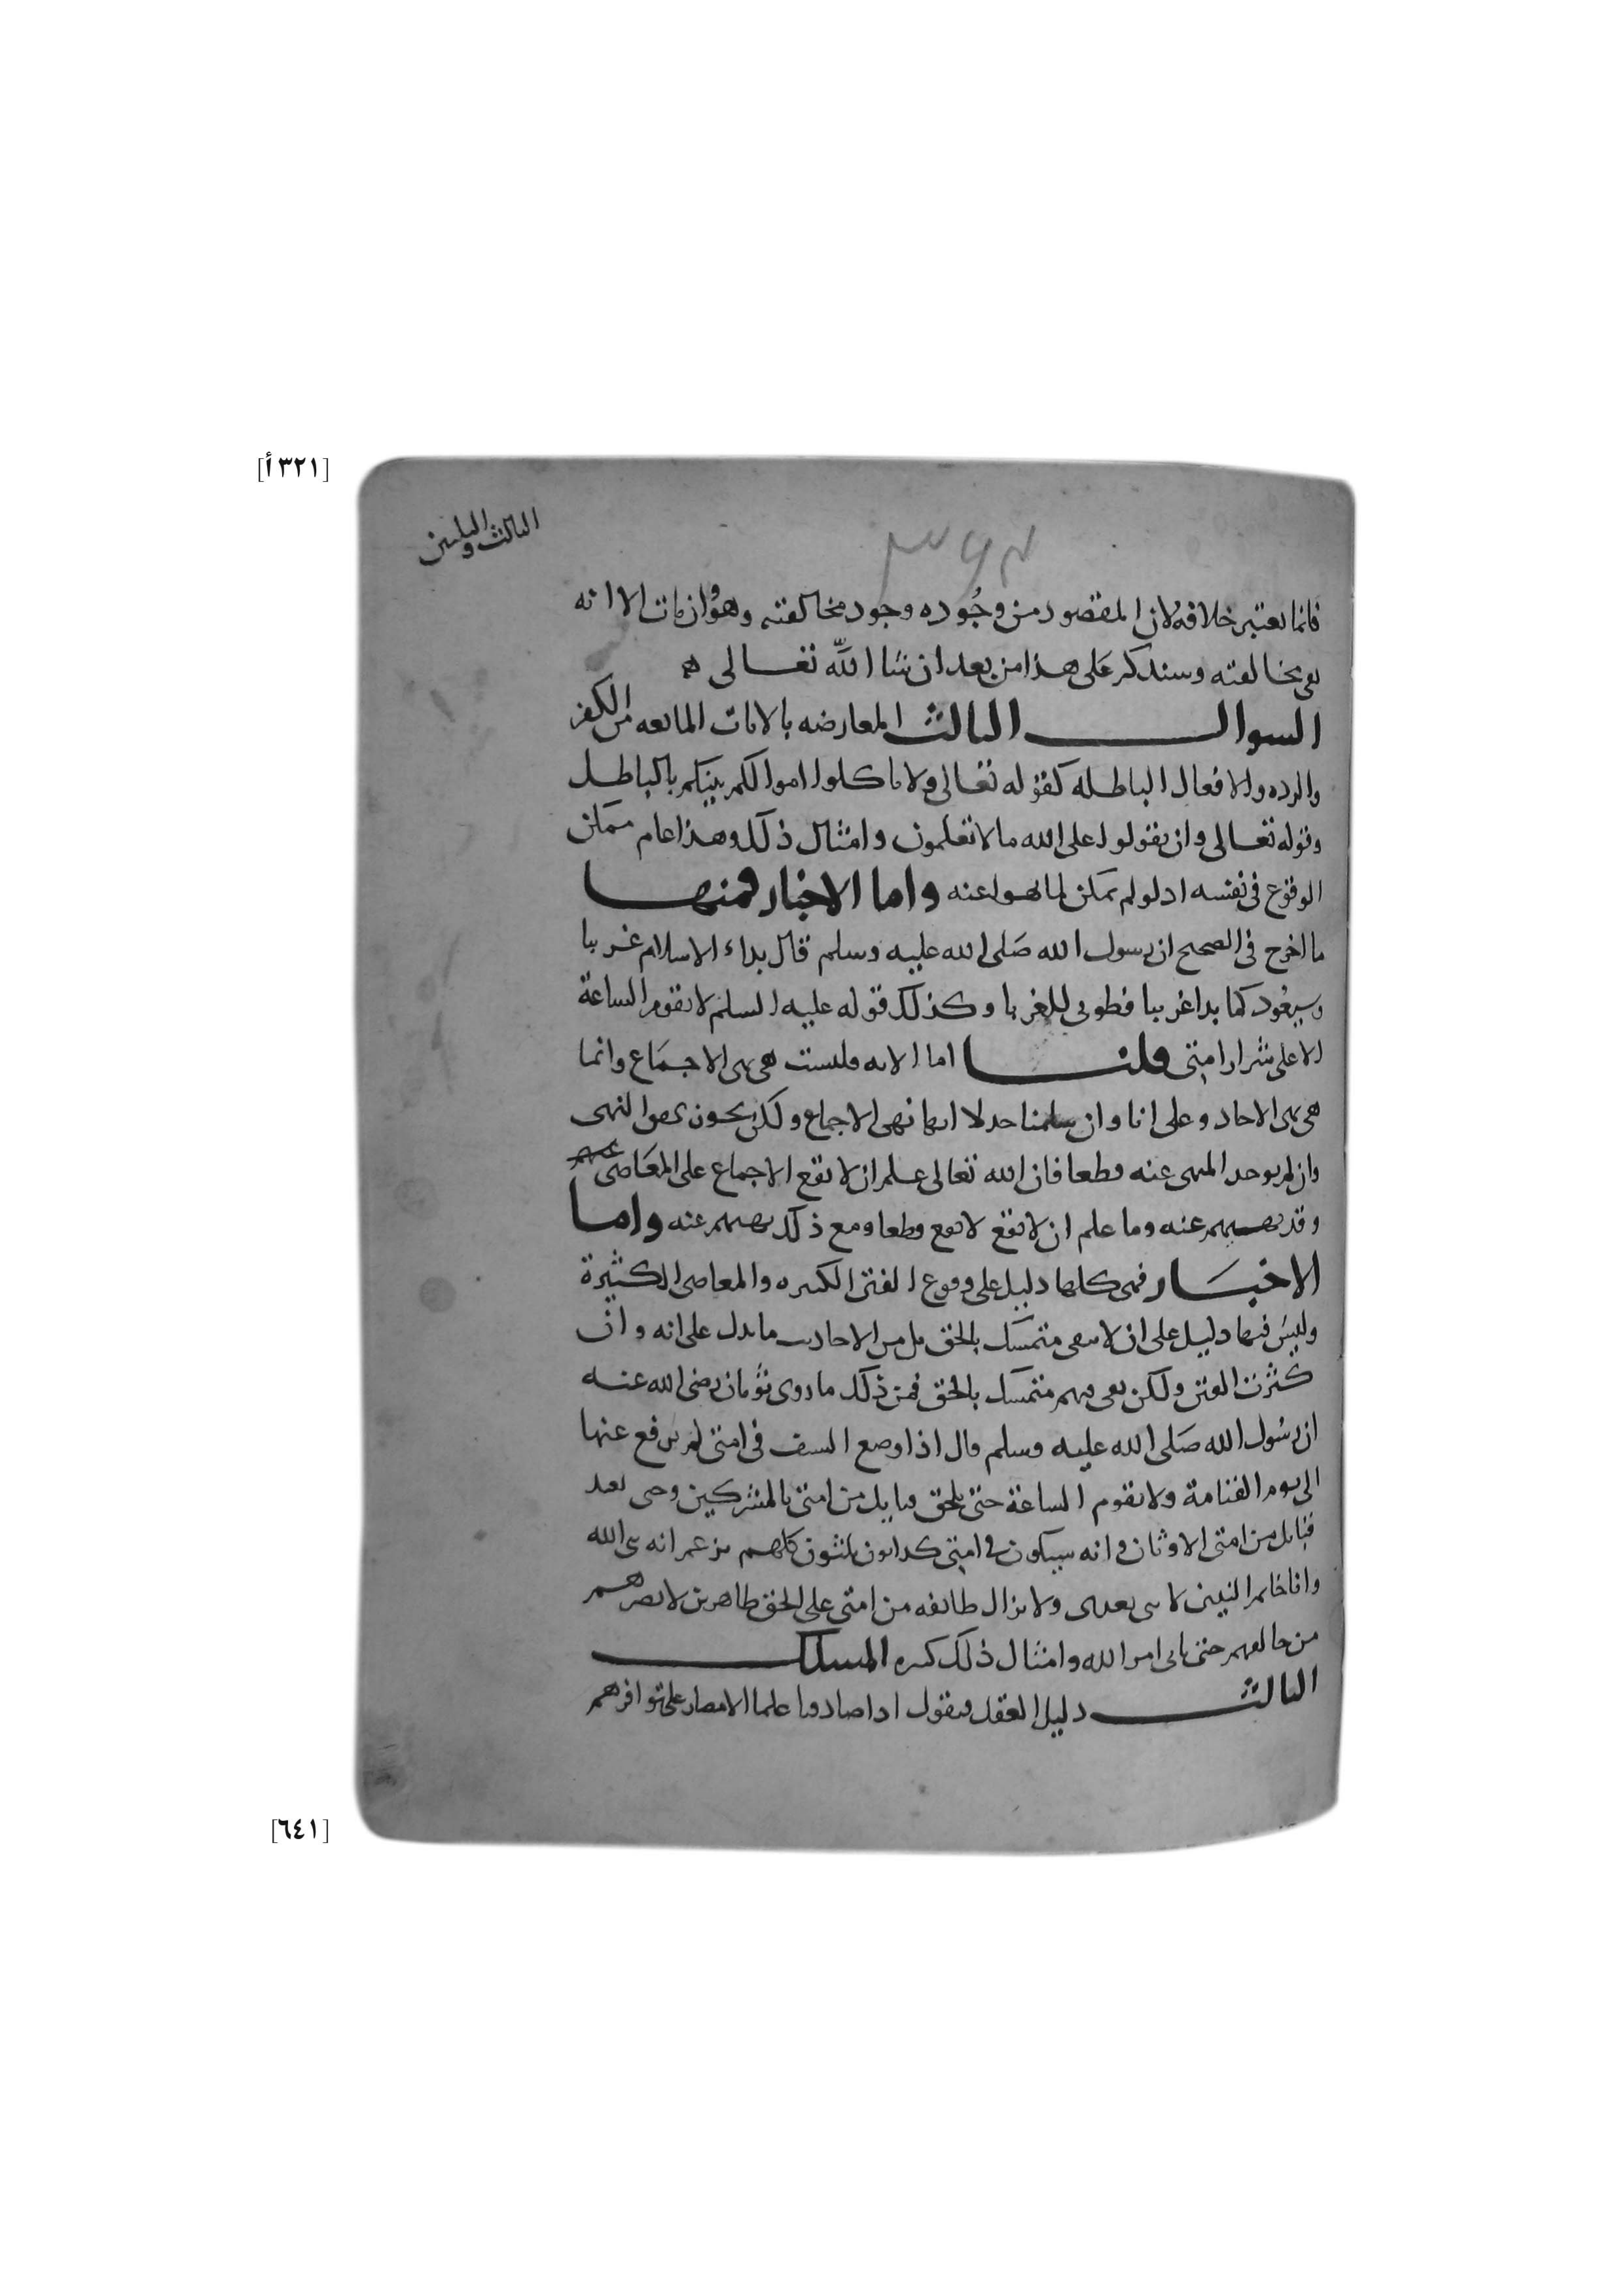 [٣٢١ أ]
الثالث والثلثين
فانما يعتبر خلافه لان المقصود من وجوده وجود مخالفته وهو وان مات الا انه
بقى مخالفته وسنذكر على هذا من بعد ان شا الله تعالى
السوال الثالث المعارضه بالايات المانعه من الكفر
والرده والافعال الباطله كقوله تعالى ولا تاكلوا اموالكم بينكم بالباطل
وقوله تعالى وان يقولوا على الله ما لا تعلمون وامثال ذلك وهذا عام ممكن
الوقوع فى نفسه اذ لو لم يمكن لما نهوا عنه واما الاخبار فمنها
ما اخرج فى الصحيح ان رسول الله صلى الله عليه وسلم قال بداء الاسلام غريبا
وسيعود كما بدا غريبا فطوبى للغربا وكذلك قوله عليه السلم لا تقوم الساعة
الا على شرار امتى قلنا اما الايه فليست هى نهى الاجماع وانما
هى نهى الاحاد وعلى انا وان سلمنا جدلا انها نهى الاجماع ولكن يجوز النهى
وان لم يوجد المنهى عنه قطعا فان الله تعالى علم ان لا تقع الاجماع على المعاصى
وقد نهيهم عنه وما علم ان لا تقع لا تقع قطعا ومع ذلك نهيهم عنه واما
الاخبار فهى كلها دليل على وقوع الفتن الكبيره والمعاصى الكثيرة
وليس فيها دليل على ان لا يبقى متمسك بالحق بل من الاحاديث ما يدل على انه وان
كثرت الفتن ولكن بقى فيهم متمسك بالحق فمن ذلك ما روى ثوبان رضى الله عنه
ان رسول الله صلى الله عليه وسلم قال اذا وضع السيف فى امتى لم يرفع عنها
الى يوم القيامة ولا تقوم الساعة حتى يلحق قبايل من امتى بالمشركين وحتى تعبد
قبايل من امتى الاوثان وانه سيكون فى امتى كذابون ثلثون كلهم يزعم انه نبى الله
وانا خاتم النبيين لا نبى بعدى ولا يزال طائفه من امتى على الحق ظاهرين لا يضرهم
من خالفهم حتى ياتى امر الله وامثال ذلك كثيره المسلك
الثالث دليل العقل فنقول اذا صادفنا علما الامصار على توافرهم
[٦٤١]